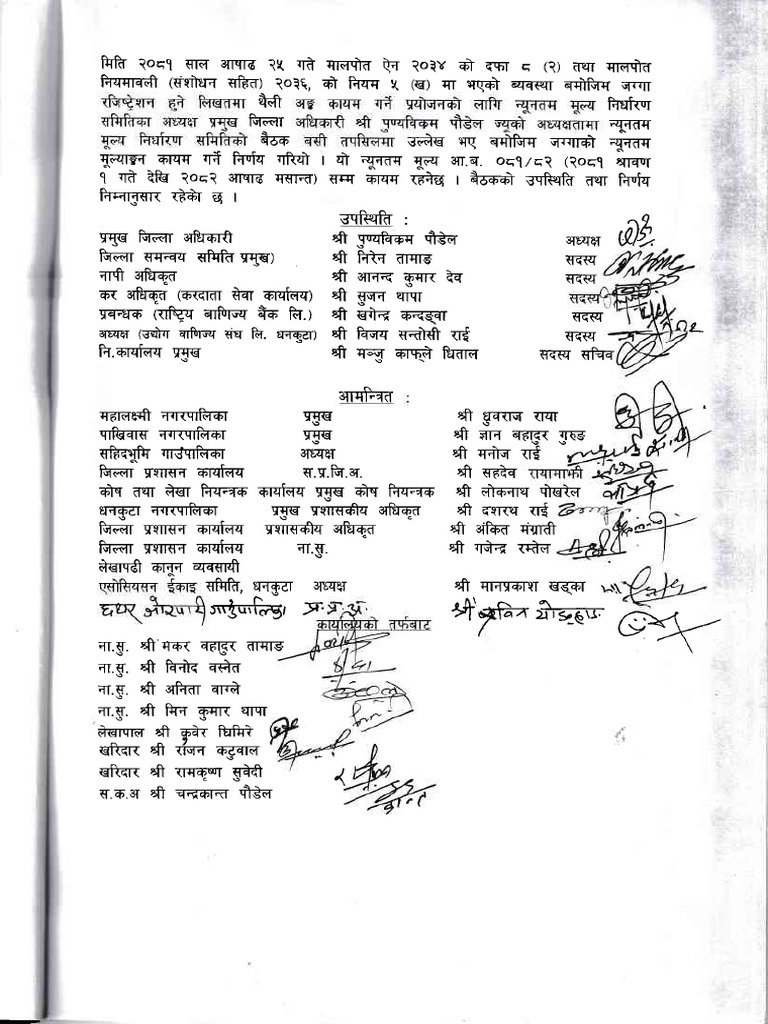 मिति २०८१ साल आषाढ २५ गते मालपोत ऐन २०३४ को दफा ८ (२) तथा मालपोत
नियमावली (संशोधन सहित) २०३६, को नियम ५ (ख) मा भएको ब्यवस्था बमोजिम जग्गा
रजिष्ट्रेशन हुने लिखतमा थैली अङ्क कायम गर्ने प्रयोजनको लागि न्यूनतम मूल्य निर्धारण
समितिका अध्यक्ष प्रमुख जिल्ला अधिकारी श्री पुण्यविक्रम पौडेल ज्यूको अध्यक्षतामा न्यूनतम
मूल्य निर्धारण समितिको बैठक बसी तपसिलमा उल्लेख भए बमोजिम जग्गाको न्यूनतम
मूल्याङ्कन कायम गर्ने निर्णय गरियो । यो न्यूनतम मूल्य आ.ब. ०८१/८२ (२०८१ श्रावण
१ गते देखि २०८२ आषाढ मसान्त) सम्म कायम रहनेछ । बैठकको उपस्थिति तथा निर्णय
निम्नानुसार रहेको छ ।
उपस्थिति :
प्रमुख जिल्ला अधिकारी श्री पुण्यविक्रम पौडेल अध्यक्ष
जिल्ला समन्वय समिति प्रमुख) श्री निरेन तामाङ सदस्य
नापी अधिकृत श्री आनन्द कुमार देव सदस्य
कर अधिकृत (करदाता सेवा कार्यालय) श्री सुजन थापा सदस्य
प्रबन्धक (राष्ट्रिय बाणिज्य बैंक लि.) श्री खगेन्द्र कन्दङ्वा सदस्य
अध्यक्ष (उद्योग वाणिज्य संघ लि. धनकुटा) श्री विजय सन्तोसी राई सदस्य
नि.कार्यालय प्रमुख श्री मञ्जु काफ्ले धिताल सदस्य सचिव
आमन्त्रित :
महालक्ष्मी नगरपालिका प्रमुख श्री ध्रुवराज राया
पाख्रिवास नगरपालिका प्रमुख श्री ज्ञान बहादुर गुरुङ
सहिदभूमि गाउँपालिका अध्यक्ष श्री मनोज राई
जिल्ला प्रशासन कार्यालय स.प्र.जि.अ. श्री सहदेव रायामाझी
कोष तथा लेखा नियन्त्रक कार्यालय प्रमुख कोष नियन्त्रक श्री लोकनाथ पोखरेल
धनकुटा नगरपालिका प्रमुख प्रशासकीय अधिकृत श्री दशरथ राई
जिल्ला प्रशासन कार्यालय प्रशासकीय अधिकृत श्री अंकित मंग्राती
जिल्ला प्रशासन कार्यालय ना.सु. श्री गजेन्द्र रम्तेल
लेखापढी कानून व्यवसायी
एसोसियसन ईकाइ समिति, धनकुटा अध्यक्ष श्री मानप्रकाश खड्का
छथर जोरपाटी गाउँपालिका प्र.प्र.अ. श्री
कार्यालयको तर्फबाट
ना.सु. श्री मकर वहादुर तामाङ
ना.सु. श्री विनोद वस्नेत
ना.सु. श्री अनिता वाग्ले
ना.सु. श्री मिन कुमार थापा
लेखापाल श्री कुवेर घिमिरे
खरिदार श्री राजन कटुवाल
खरिदार श्री रामकृष्ण सुवेदी
स.क.अ श्री चन्द्रकान्त पौडेल